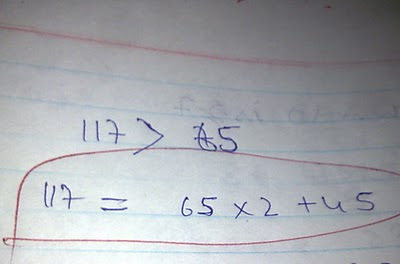 117 > 65
117 = 65 × 2 + 45